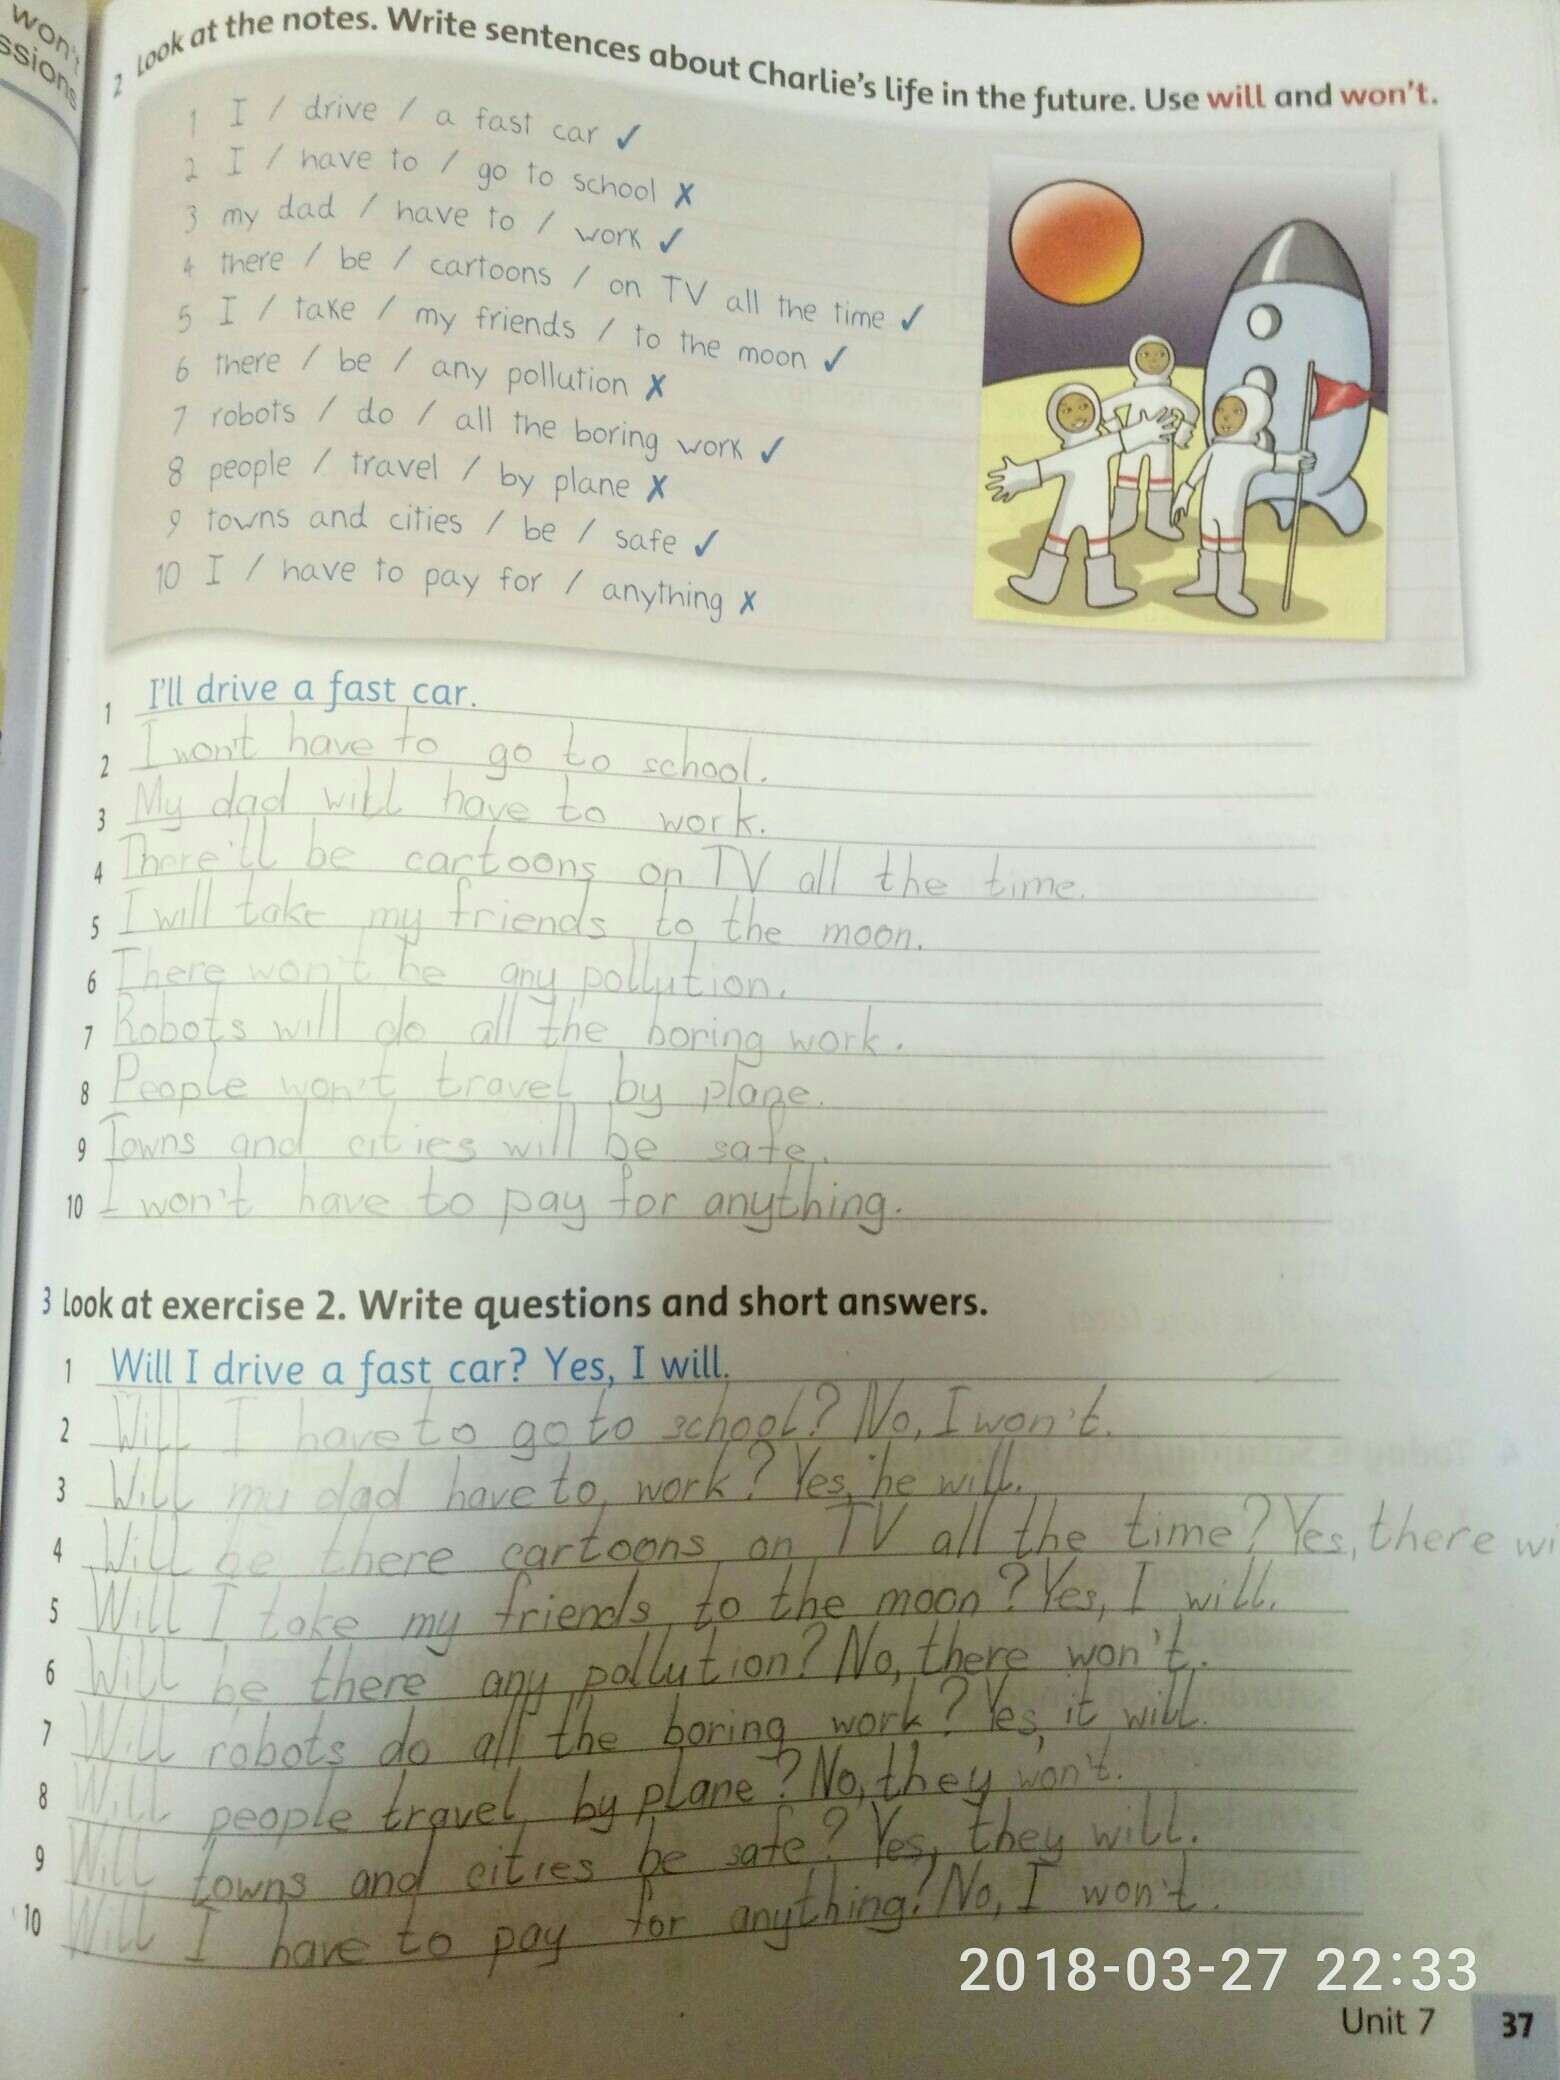 won't
ssions
2 Look at the notes. Write sentences about Charlie's life in the future. Use will and won't.
1 I / drive / a fast car ✓
2 I / have to / go to school ✗
3 my dad / have to / work ✓
4 there / be / cartoons / on TV all the time ✓
5 I / take / my friends / to the moon ✓
6 there / be / any pollution ✗
7 robots / do / all the boring work ✓
8 people / travel / by plane ✗
9 towns and cities / be / safe ✓
10 I / have to pay for / anything ✗
1 I'll drive a fast car.
2 I won't have to go to school.
3 My dad will have to work.
4 There'll be cartoons on TV all the time.
5 I will take my friends to the moon.
6 There won't be any pollution.
7 Robots will do all the boring work.
8 People won't travel by plane.
9 Towns and cities will be safe.
10 I won't have to pay for anything.
3 Look at exercise 2. Write questions and short answers.
1 Will I drive a fast car? Yes, I will.
2 Will I have to go to school? No, I won't.
3 Will my dad have to work? Yes, he will.
4 Will be there cartoons on TV all the time? Yes, there wi
5 Will I take my friends to the moon? Yes, I will.
6 Will be there any pollution? No, there won't.
7 Will robots do all the boring work? Yes, it will.
8 Will people travel by plane? No, they won't.
9 Will towns and cities be safe? Yes, they will.
10 Will I have to pay for anything? No, I won't.
2018-03-27 22:33
Unit 7 37